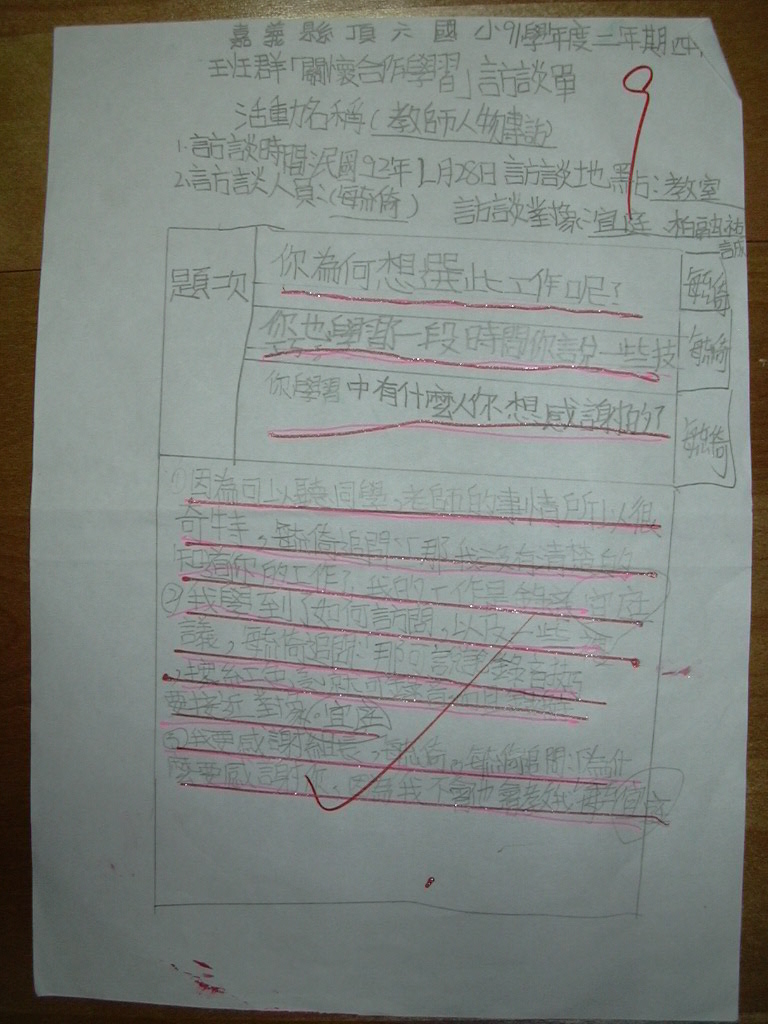 嘉義縣頂六國小91學年度二年期四
班班群「關懷台灣學習」訪談單
活動名稱(教師人物專訪)
9
1.訪談時間:民國92年1月28日 訪談地點:教室
2.訪談人員:(毓倚) 訪談對像:宜庭、柏
題次
你為何想選此工作呢?
毓倚
你也學習了一段時間你說一些技
毓倚
你學習中有什麼人你想感謝的?
毓倚
①因為可以聽同學、老師的事情所以很
奇特,毓倚追問:那我沒有清楚的
知道你的工作?我的工作是
②我學到了如何訪問,以及一些會
議,毓倚追問:那可說
要接近對象。宜庭
③我要感謝組長,毓倚。毓倚追問:「為什
麼要感謝他,因為我不會他會教我